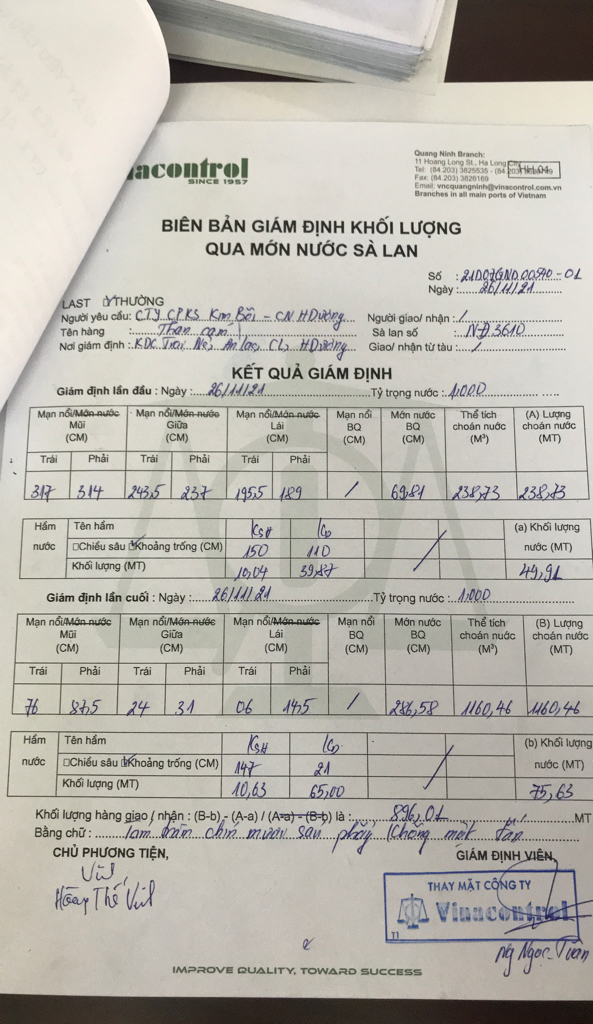 nacontrol
SINCE 1957
Quang Ninh Branch:
11 Hoang Long St., Ha Long City
Tel: (84.203) 3825535 - (84.203)
HH 04
Fax: (84.203) 3826169
Email: vncquangninh@vinacontrol.com.vn
Branches in all main ports of Vietnam
BIÊN BẢN GIÁM ĐỊNH KHỐI LƯỢNG
QUA MỚN NƯỚC SÀ LAN
Số : 21D07GND00590-01
Ngày : 26/11/21
LAST THƯỜNG
Người yêu cầu: CTY CPKS Kim Bôi - CN HDương Người giao/ nhận : /
Tên hàng : Than cám Sà lan số : NĐ 3610
Nơi giám định : KDC Trại Nẻ, An lạc, CL, HDương Giao/ nhận từ tàu : /
KẾT QUẢ GIÁM ĐỊNH
Giám định lần đầu : Ngày : 26/11/21 Tỷ trọng nước : 1,000
Mạn nổi/Mớn nước Mũi (CM) Mạn nổi/Mớn nước Giữa (CM) Mạn nổi/Mớn nước Lái (CM) Mạn nổi BQ (CM) Mớn nước BQ (CM) Thể tích choán nước (M³) (A) Lượng choán nước (MT)
Trái Phải Trái Phải Trái Phải
317 314 243,5 237 195,5 189 / 69,81 238,73 238,73
Hầm nước Tên hầm KSH (a) Khối lượng nước (MT)
Chiều sâu Khoảng trống (CM) 150 110
Khối lượng (MT) 10,04 39,87 49,91
Giám định lần cuối : Ngày : 26/11/21 Tỷ trọng nước : 1,000
Mạn nổi/Mớn nước Mũi (CM) Mạn nổi/Mớn nước Giữa (CM) Mạn nổi/Mớn nước Lái (CM) Mạn nổi BQ (CM) Mớn nước BQ (CM) Thể tích choán nước (M³) (B) Lượng choán nước (MT)
Trái Phải Trái Phải Trái Phải
76 87,5 24 31 06 14,5 / 286,58 1160,46 1160,46
Hầm nước Tên hầm KSH (b) Khối lượng nước (MT)
Chiều sâu Khoảng trống (CM) 147 21
Khối lượng (MT) 10,63 65,00 75,63
Khối lượng hàng giao / nhận : (B-b) - (A-a) / (A-a) - (B-b) là : 896,01 MT
Bằng chữ : Tám trăm chín mươi sáu phẩy không một tấn
CHỦ PHƯƠNG TIỆN, GIÁM ĐỊNH VIÊN,
THAY MẶT CÔNG TY
Vinacontrol
T1
Ng Ngọc Tuân
IMPROVE QUALITY, TOWARD SUCCESS